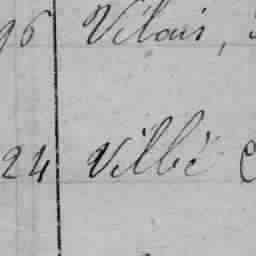 96 Vilais,
24 Vilbé